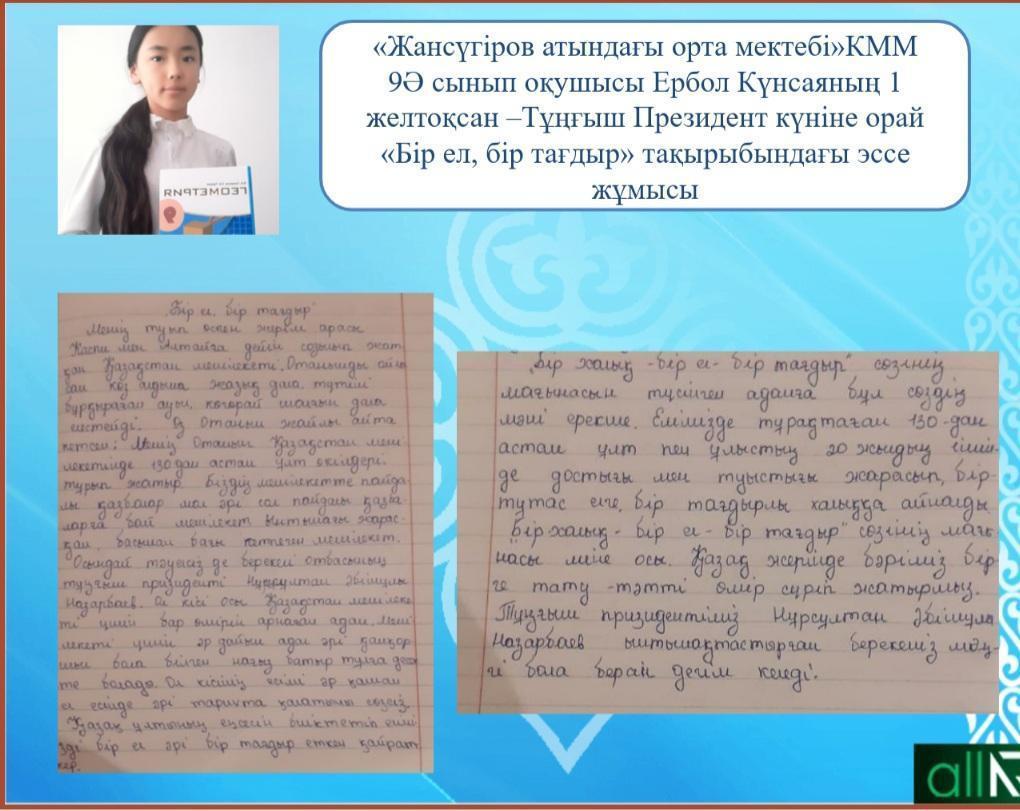 «Жансүгіров атындағы орта мектебі»КММ
9Ә сынып оқушысы Ербол Күнсаяның 1
желтоқсан –Тұңғыш Президент күніне орай
«Бір ел, бір тағдыр» тақырыбындағы эссе
жұмысы
ГЕОМЕТРИЯ
"Бір ел, бір тағдыр"
Менің туып өскен жерім арасы
Каспи мен Алтайға дейін созылып жат
қан Қазақстан мемлекеті. Отанымды ойла
сам көз алдыма жазық дала, түтіні
бұрқыраған ауыл, көгорай шалғын дала
елестейді. Өз Отаным жайлы айта
кетсем: Менің Отаным Қазақстан мем
лекетінде 130дан астам ұлт өкілдері
тұрып жатыр. Біздің мемлекетте пайда
лы қазбалар мол әрі сол пайдалы қазба
ларға бай мемлекет ынтымағы жарас
қан, басынан бағы таймеген мемлекет.
Осындай тәуелсіз де берекелі отбасының
тұңғыш призиденті Нұрсұлтан Әбішұлы
Назарбаев. Ол кісі осы Қазақстан мемлеке
ті үшін бар өмірін арнаған адам. Мем
лекеті үшін әр дайын адал әрі қамқор
шы бола білген нағыз батыр тұлға десек
те болады. Ол кісінің есімі әр қашан
ел есінде әрі тарихта қалатыны сөзсіз.
Қазақ ұлтының еңсесін биіктетіп елімі
зді бір ел әрі бір тағдыр еткен қайрат
кер.
"Бір халық - бір ел - бір тағдыр" сөзінің
мағынасын түсінген адамға бұл сөздің
мәні ерекше. Елімізде тұрақтаған 130-дан
астам ұлт пен ұлыстың 20 жылдың ішін
де достығы мен туыстығы жарасып, бір-
тұтас елге, бір тағдырлы халыққа айналды.
"Бір халық - бір ел - бір тағдыр" сөзінің мағы
насы міне осы. Қазақ жерінде бәріміз бір
ге тату -тәтті өмір сүріп жатырмыз.
Тұңғыш призидентіміз Нұрсұлтан Әбішұлы
Назарбаев ынтымақтастырған берекеміз мәң
гі бола берсін дегім келеді.